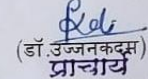 (डॉ. उज्जनकदम)
प्राचार्य